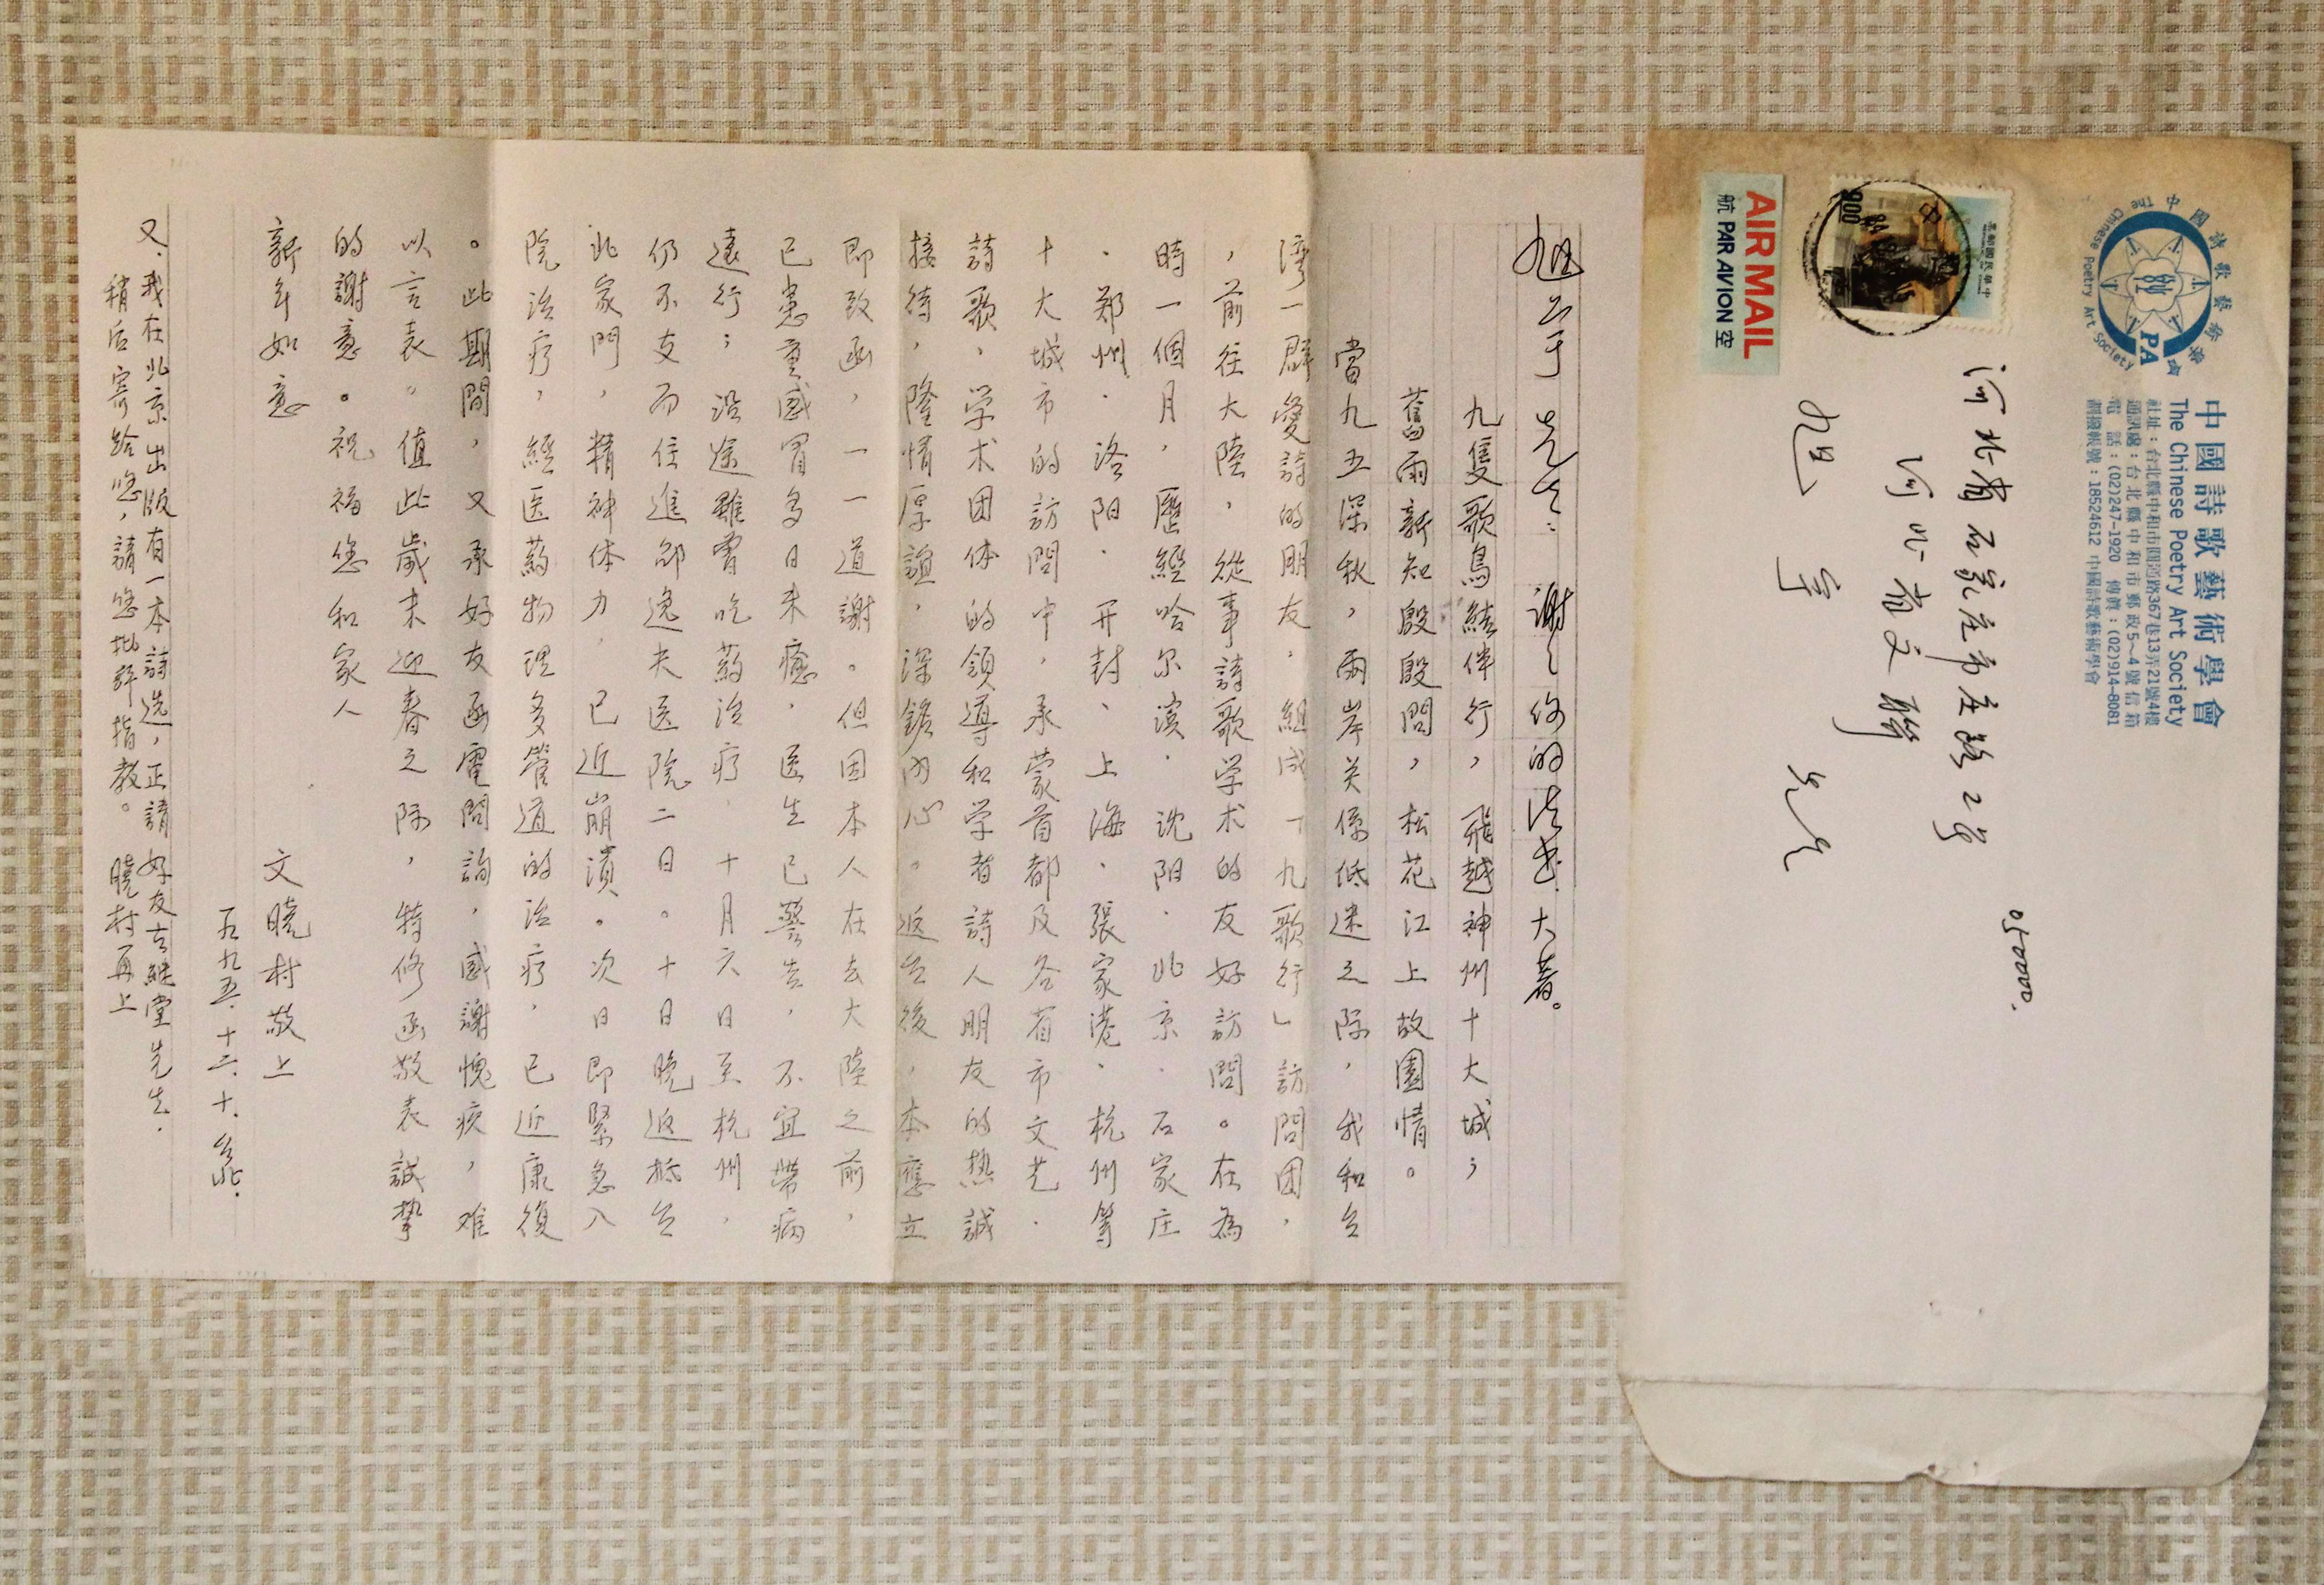 旭宇先生：謝謝你的法書大著。
九隻歌鳥結伴行，飛越神州十大城；
舊雨新知殷殷問，松花江上故園情。
當九五深秋，兩岸关係低迷之際，我和台
灣一群愛詩的朋友，組成「九歌行」訪問团，
，前往大陸，從事詩歌学术的友好訪問。在為
時一個月，歷經哈尔濱．沈阳．北京．石家庄
．郑州．洛阳．开封、上海．張家港．杭州等
十大城市的訪問中，承蒙首都及各省市文艺．
詩歌，学术团体的領導和学者詩人朋友的热誠
接待，隆情厚誼，深銘內心。返台後，本應立
即致函，一一道謝。但因本人在去大陸之前，
已患重感冒多日未癒，医生已警告，不宜帶病
遠行；沿途雖曾吃葯治疗，十月六日至杭州，
仍不支而住進邵逸夫医院二日。十日晚返抵台
北家門，精神体力，已近崩潰。次日即緊急入
院治疗，經医葯物理多管道的治疗，已近康復
。此期間，又承好友函電問詢，感謝愧疚，难
以言表。值此歲末迎春之际，特修函敬表誠摯
的謝意。祝福您和家人
新年如意
文曉村敬上
一九九五．十二．十．台北．
又．我在北京出版有一本詩选，正請好友古繼堂先生．
稍后寄給您，請您批評指教。 曉村再上
中國詩歌藝術學會
The Chinese Poetry Art Society
PA
中國詩歌藝術學會
The Chinese Poetry Art Society
社址：台北縣中和市圓通路367巷13弄21號4樓
通訊處：台北縣中和市郵政5～4號信箱
電 話：(02)247-1920 傳真：(02)914-8081
劃撥帳號：18524612 中國詩歌藝術學會
050000.
河北省石家庄市市庄路2号
河北省文聯
旭宇 先生
中華民國郵票
900
AIR MAIL
航 PAR AVION 空